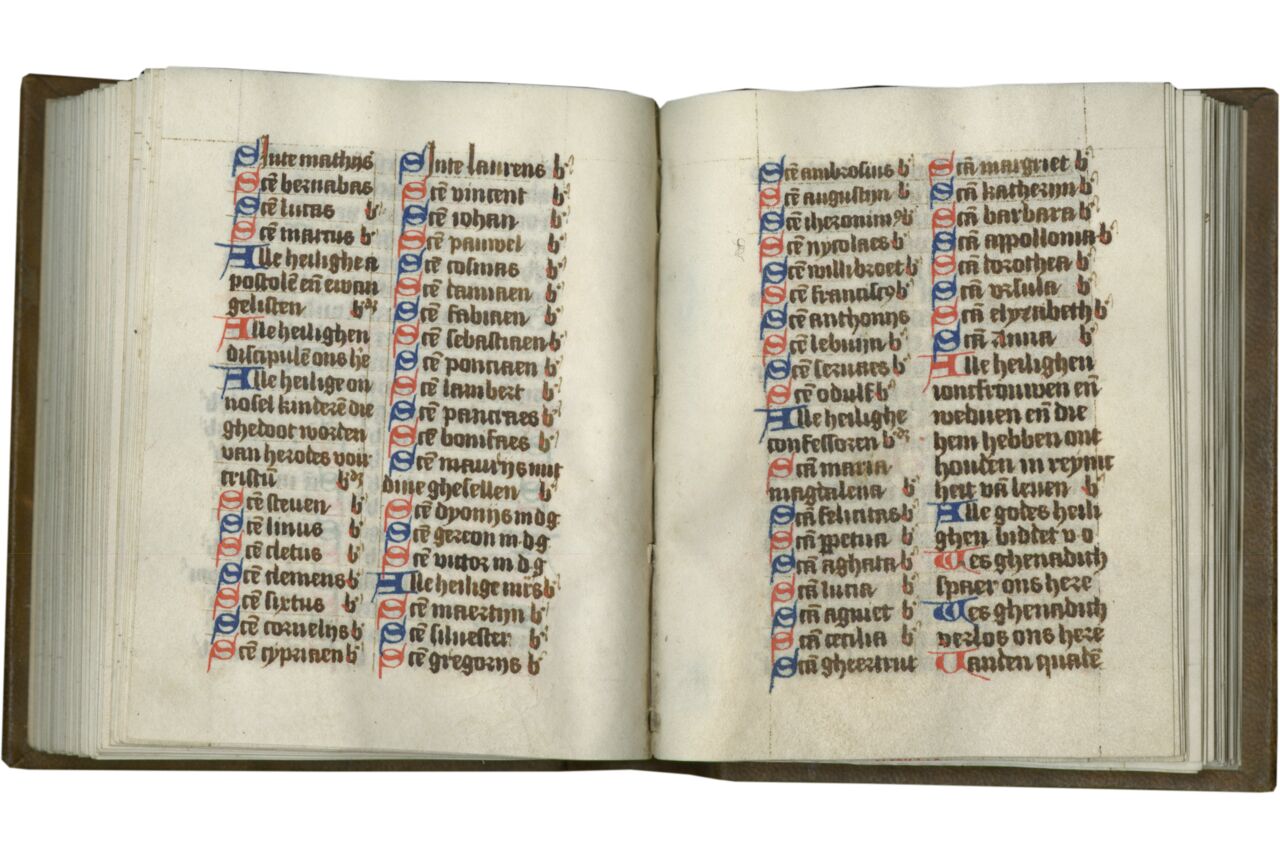 Sinte mathijs
Scē bernabas
Scē lucas b
Scē marcus b
Alle heilighe a
postolē eñ ewan
gelisten b
Alle heilighen
discipulē ons h'e
Alle heilige on
nosel kinderē die
ghedoot worden
van herodes voir
cristū b
Scē steuen b
Scē linus b
Scē cletus b
Scē clemens b
Scē sixtus b
Scē cornelijs b
Scē cypriaen b
Sinte laurens b
Scē vincent b
Scē iohan b
Scē pauwel b
Scē cosmas b
Scē damiaen b
Scē fabiaen b
Scē sebastiaen b
Scē ponciaen b
Scē lambert b
Scē pancraes b
Scē bonifaes b
Scē maurijs mit
dine ghesellen b
Scē dyonijs m d g
Scē gereon m d g
Scē victor m d g
Alle heilige mrs b
Scē maertijn b
Scē siluester b
Scē gregorijs b
Scē ambrosius b
Scē augustijn b
Scē iheronimꝰ b
Scē nycolaes b
Scē willibroet b
Scē franciscꝰ b
Scē anthonijs
Scē lebuijn b
Scē seruaes b
Scē odulf b
Alle heilighe
confessoren b
Scā maria
magdalena b
Scā felicitas b
Scā ꝑpetua b
Scā aghata b
Scā lucia b
Scā agniet b
Scā cecilia b
Scā gheertrut
Scā margriet b
Scā katherijn b
Scā barbara b
Scā appollonia b
Scā dorothea b
Scā vrsula b
Scā elyzabeth b
Scā anna b
Alle heilighen
ioncfrouwen eñ
weduen eñ die
hem hebben ont
houden in reynic
heit vā leuen b
Alle godes heili
ghen biddet v o
Wes ghenadich
spaer ons here
Wes ghenadich
verlos ons here
Vanden qualē